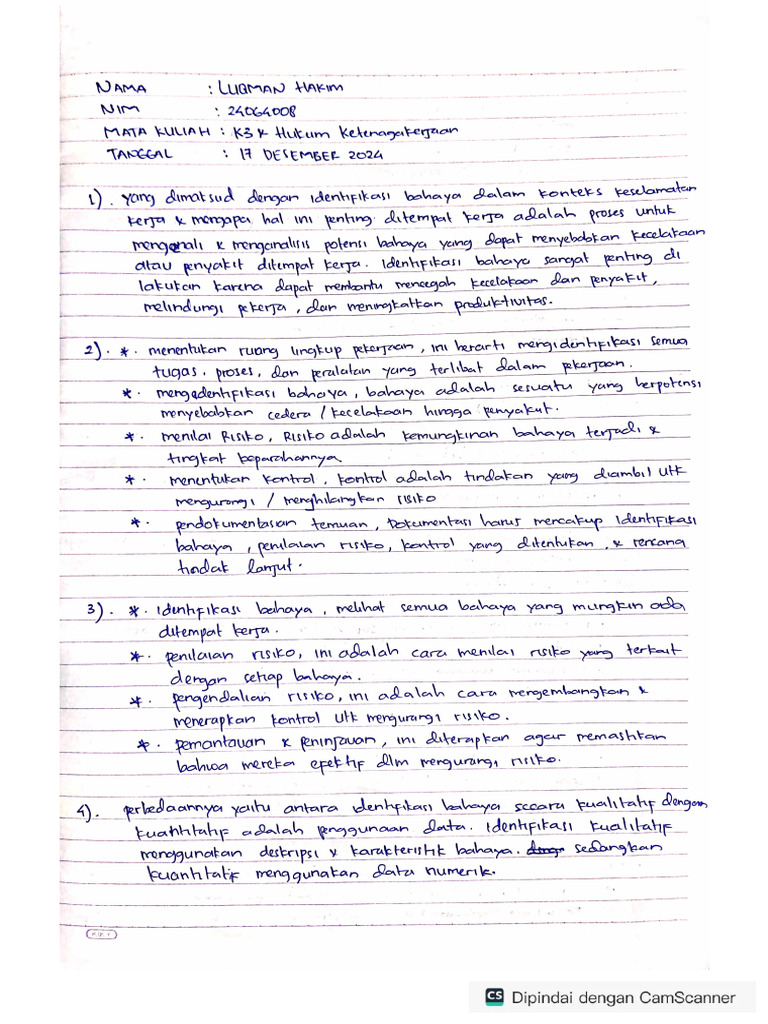 NAMA : LUQMAN HAKIM
NIM : 24064008
MATA KULIAH : K3 & Hukum Ketenagakerjaan
TANGGAL : 17 DESEMBER 2024
1). yang dimaksud dengan identifikasi bahaya dalam konteks keselamatan
kerja & mengapa hal ini penting ditempat kerja adalah proses untuk
mengenali & menganalisis potensi bahaya yang dapat menyebabkan kecelakaan
atau penyakit ditempat kerja. Identifikasi bahaya sangat penting di
lakukan karena dapat membantu mencegah kecelakaan dan penyakit,
melindungi pekerja, dan meningkatkan produktivitas.
2). *. menentukan ruang lingkup pekerjaan, ini berarti mengidentifikasi semua
tugas, proses, dan peralatan yang terlibat dalam pekerjaan.
*. mengedentifikasi bahaya, bahaya adalah sesuatu yang berpotensi
menyebabkan cedera / kecelakaan hingga penyakit.
*. menilai Risiko, Risiko adalah kemungkinan bahaya terjadi &
tingkat keparahannya
*. menentukan kontrol, kontrol adalah tindakan yang diambil utk
mengurangi / menghilangkan risiko
*. pendokumentasian temuan, Dokumentasi harus mencakup identifikasi
bahaya, penilaian risiko, kontrol yang ditentukan, & rencana
tindak lanjut.
3). *. identifikasi bahaya, melihat semua bahaya yang mungkin ada
ditempat kerja.
*. penilaian risiko, ini adalah cara menilai risiko yang terkait
dengan setiap bahaya.
*. pengendalian risiko, ini adalah cara mengembangkan &
menerapkan kontrol utk mengurangi risiko.
*. pemantauan & peninjauan, ini diterapkan agar memastikan
bahwa mereka efektif dlm mengurangi risiko.
4). perbedaannya yaitu antara identifikasi bahaya secara kualitatif dengan
kuantitatif adalah penggunaan data. Identifikasi kualitatif
menggunakan deskripsi & karakteristik bahaya. sedangkan
kuantitatif menggunakan data numerik.
CS Dipindai dengan CamScanner